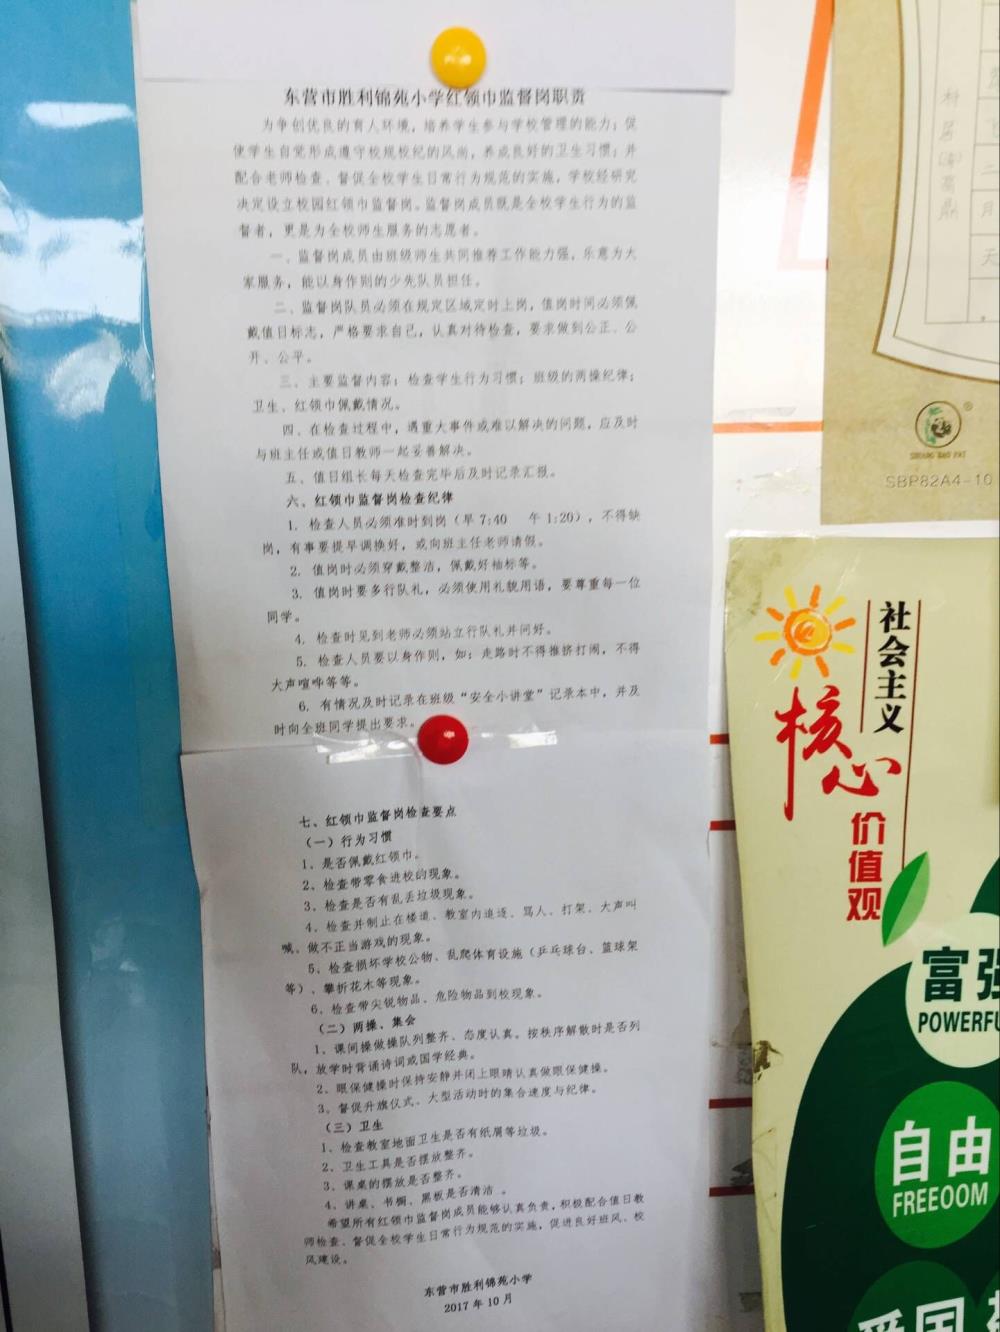 东营市胜利锦苑小学红领巾监督岗职责
为争创优良的育人环境，培养学生参与学校管理的能力；促
使学生自觉形成遵守校规校纪的风尚，养成良好的卫生习惯；并
配合老师检查、督促全校学生日常行为规范的实施，学校经研究
决定设立校园红领巾监督岗。监督岗成员既是全校学生行为的监
督者，更是为全校师生服务的志愿者。
一、监督岗成员由班级师生共同推荐工作能力强，乐意为大
家服务，能以身作则的少先队员担任。
二、监督岗队员必须在规定区域定时上岗，值岗时间必须佩
戴值日标志，严格要求自己，认真对待检查，要求做到公正、公
开、公平。
三、主要监督内容：检查学生行为习惯；班级的两操纪律；
卫生、红领巾佩戴情况。
四、在检查过程中，遇重大事件或难以解决的问题，应及时
与班主任或值日教师一起妥善解决。
五、值日组长每天检查完毕后及时记录汇报。
六、红领巾监督岗检查纪律
1. 检查人员必须准时到岗（早 7:40 午 1:20），不得缺
岗，有事要提早调换好，或向班主任老师请假。
2. 值岗时必须穿戴整洁，佩戴好袖标等。
3. 值岗时要多行队礼，必须使用礼貌用语，要尊重每一位
同学。
4. 检查时见到老师必须站立行队礼并问好。
5. 检查人员要以身作则，如：走路时不得推挤打闹，不得
大声喧哗等等。
6. 有情况及时记录在班级“安全小讲堂”记录本中，并及
时向全班同学提出要求。
七、红领巾监督岗检查要点
（一）行为习惯
1、是否佩戴红领巾。
2、检查带零食进校的现象。
3、检查是否有乱丢垃圾现象。
4、检查并制止在楼道、教室内追逐、骂人、打架、大声叫
喊、做不正当游戏的现象。
5、检查损坏学校公物、乱爬体育设施（乒乓球台、篮球架
等）、攀折花木等现象。
6、检查带尖锐物品、危险物品到校现象。
（二）两操、集会
1、课间操做操队列整齐、态度认真。按秩序解散时是否列
队，放学时背诵诗词或国学经典。
2、眼保健操时保持安静并闭上眼睛认真做眼保健操。
3、督促升旗仪式、大型活动时的集合速度与纪律。
（三）卫生
1、检查教室地面卫生是否有纸屑等垃圾。
2、卫生工具是否摆放整齐。
3、课桌的摆放是否整齐。
4、讲桌、书橱、黑板是否清洁 。
希望所有红领巾监督岗成员能够认真负责，积极配合值日教
师检查、督促全校学生日常行为规范的实施，促进良好班风、校
风建设。
东营市胜利锦苑小学
2017 年 10 月
SHUANG BAO PAI
SBP82A4-10
社会主义
核心
价值观
富强
POWERFU
自由
FREEOOM
爱国